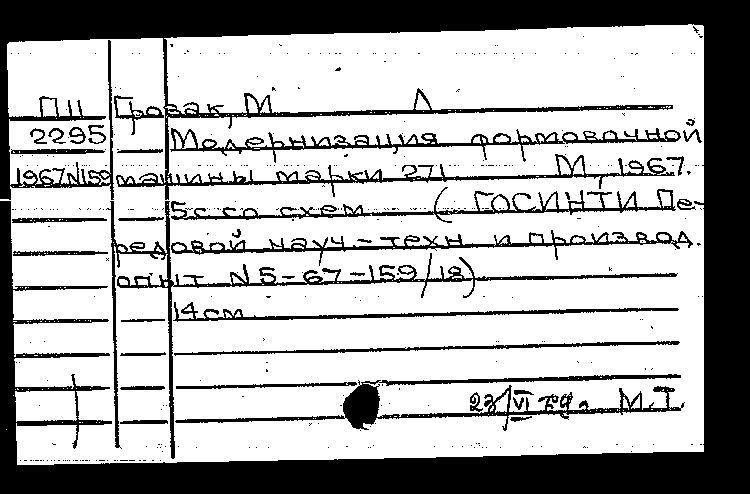 П11 Грозак, М Л
2295 Модернизация формовочной
1967N159 машины марки 271 М, 1967.
5с со схем (ГОСИНТИ Пе-
редовой науч-техн и производ.
опыт N 5-67-159/18)
14 см
23/VI М.Т.